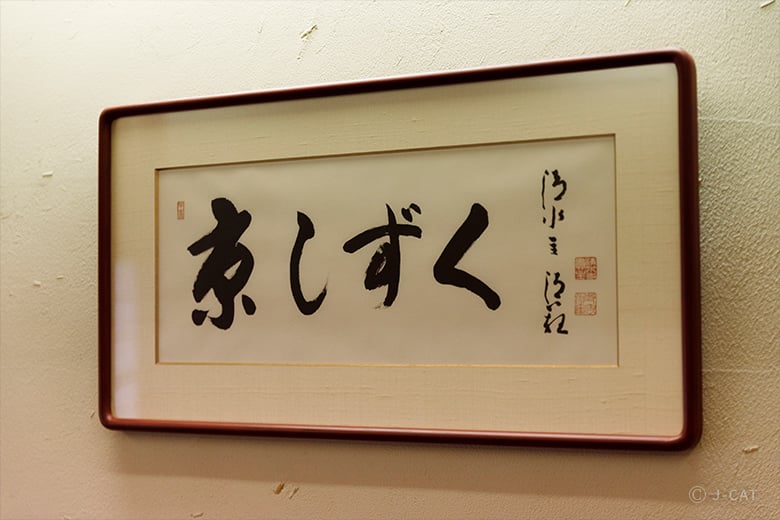 京しずく
清水主 清範
© J-CAT